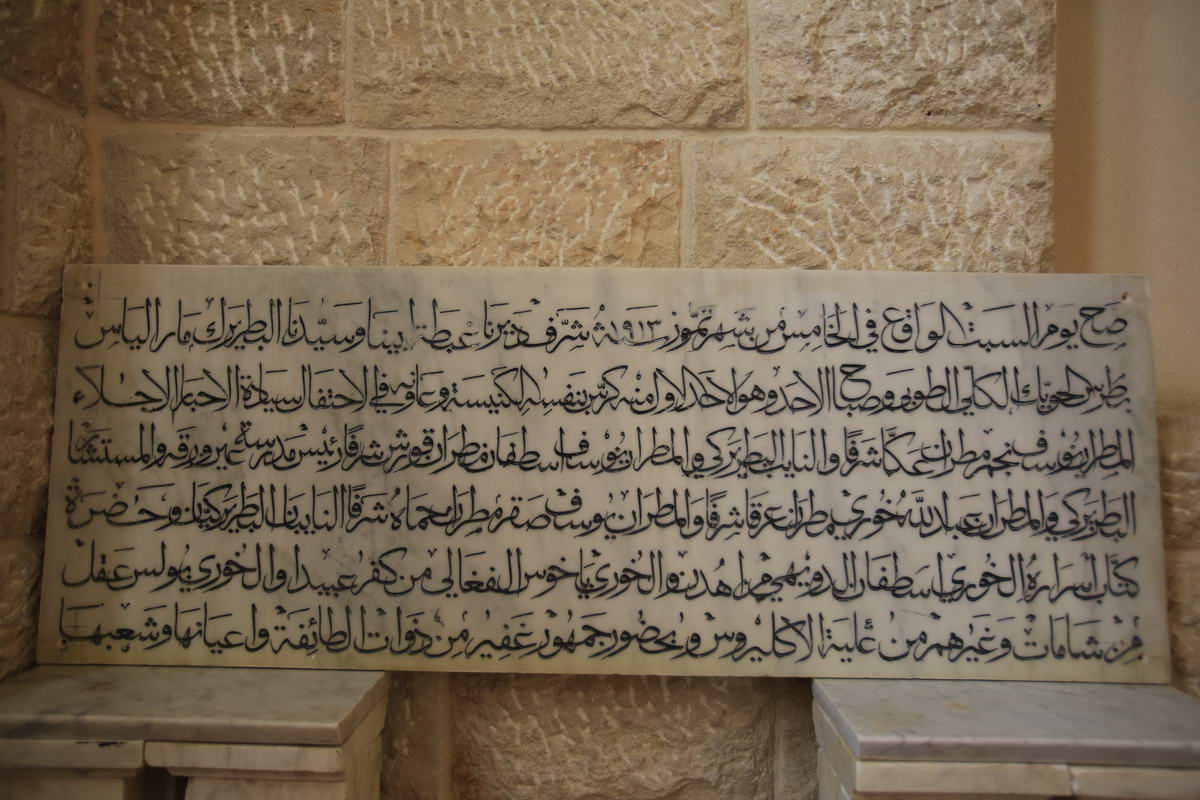 صح يوم السبت الواقع في الخامس من شهر تموز ١٩١٣ شرّف ديرنا غبطة ابينا وسيّدنا البطريرك مار الياس
بطرس الحويك الكلي الطوبى وصباح الاحد وهو الاحد الاول منه كرّس بنفسه الكنيسة وعاونه في الاحتفال سيادة الاحبار الاجلاء
المطران يوسف نجم مطران عكّا شرفًا والنايب البطريركي والمطران يوسف اسطفان مطران قورش شرفًا رئيس مدرسة عين ورقه والمستشار
البطريركي والمطران عبدالله خوري مطران عرقا شرفًا والمطران يوسف صقر مطران حماه شرفًا النايبان البطريركيان وحضرة
كتّاب اسراره الخوري اسطفان الدويهي من اهدن والخوري ياخوس الفغالي من كفر عبيدا والخوري بولس عقل
من شامات وغيرهم من علية الاكليروس وبحضور جمهور غفير من ذوات الطائفة واعيانها وشعبها